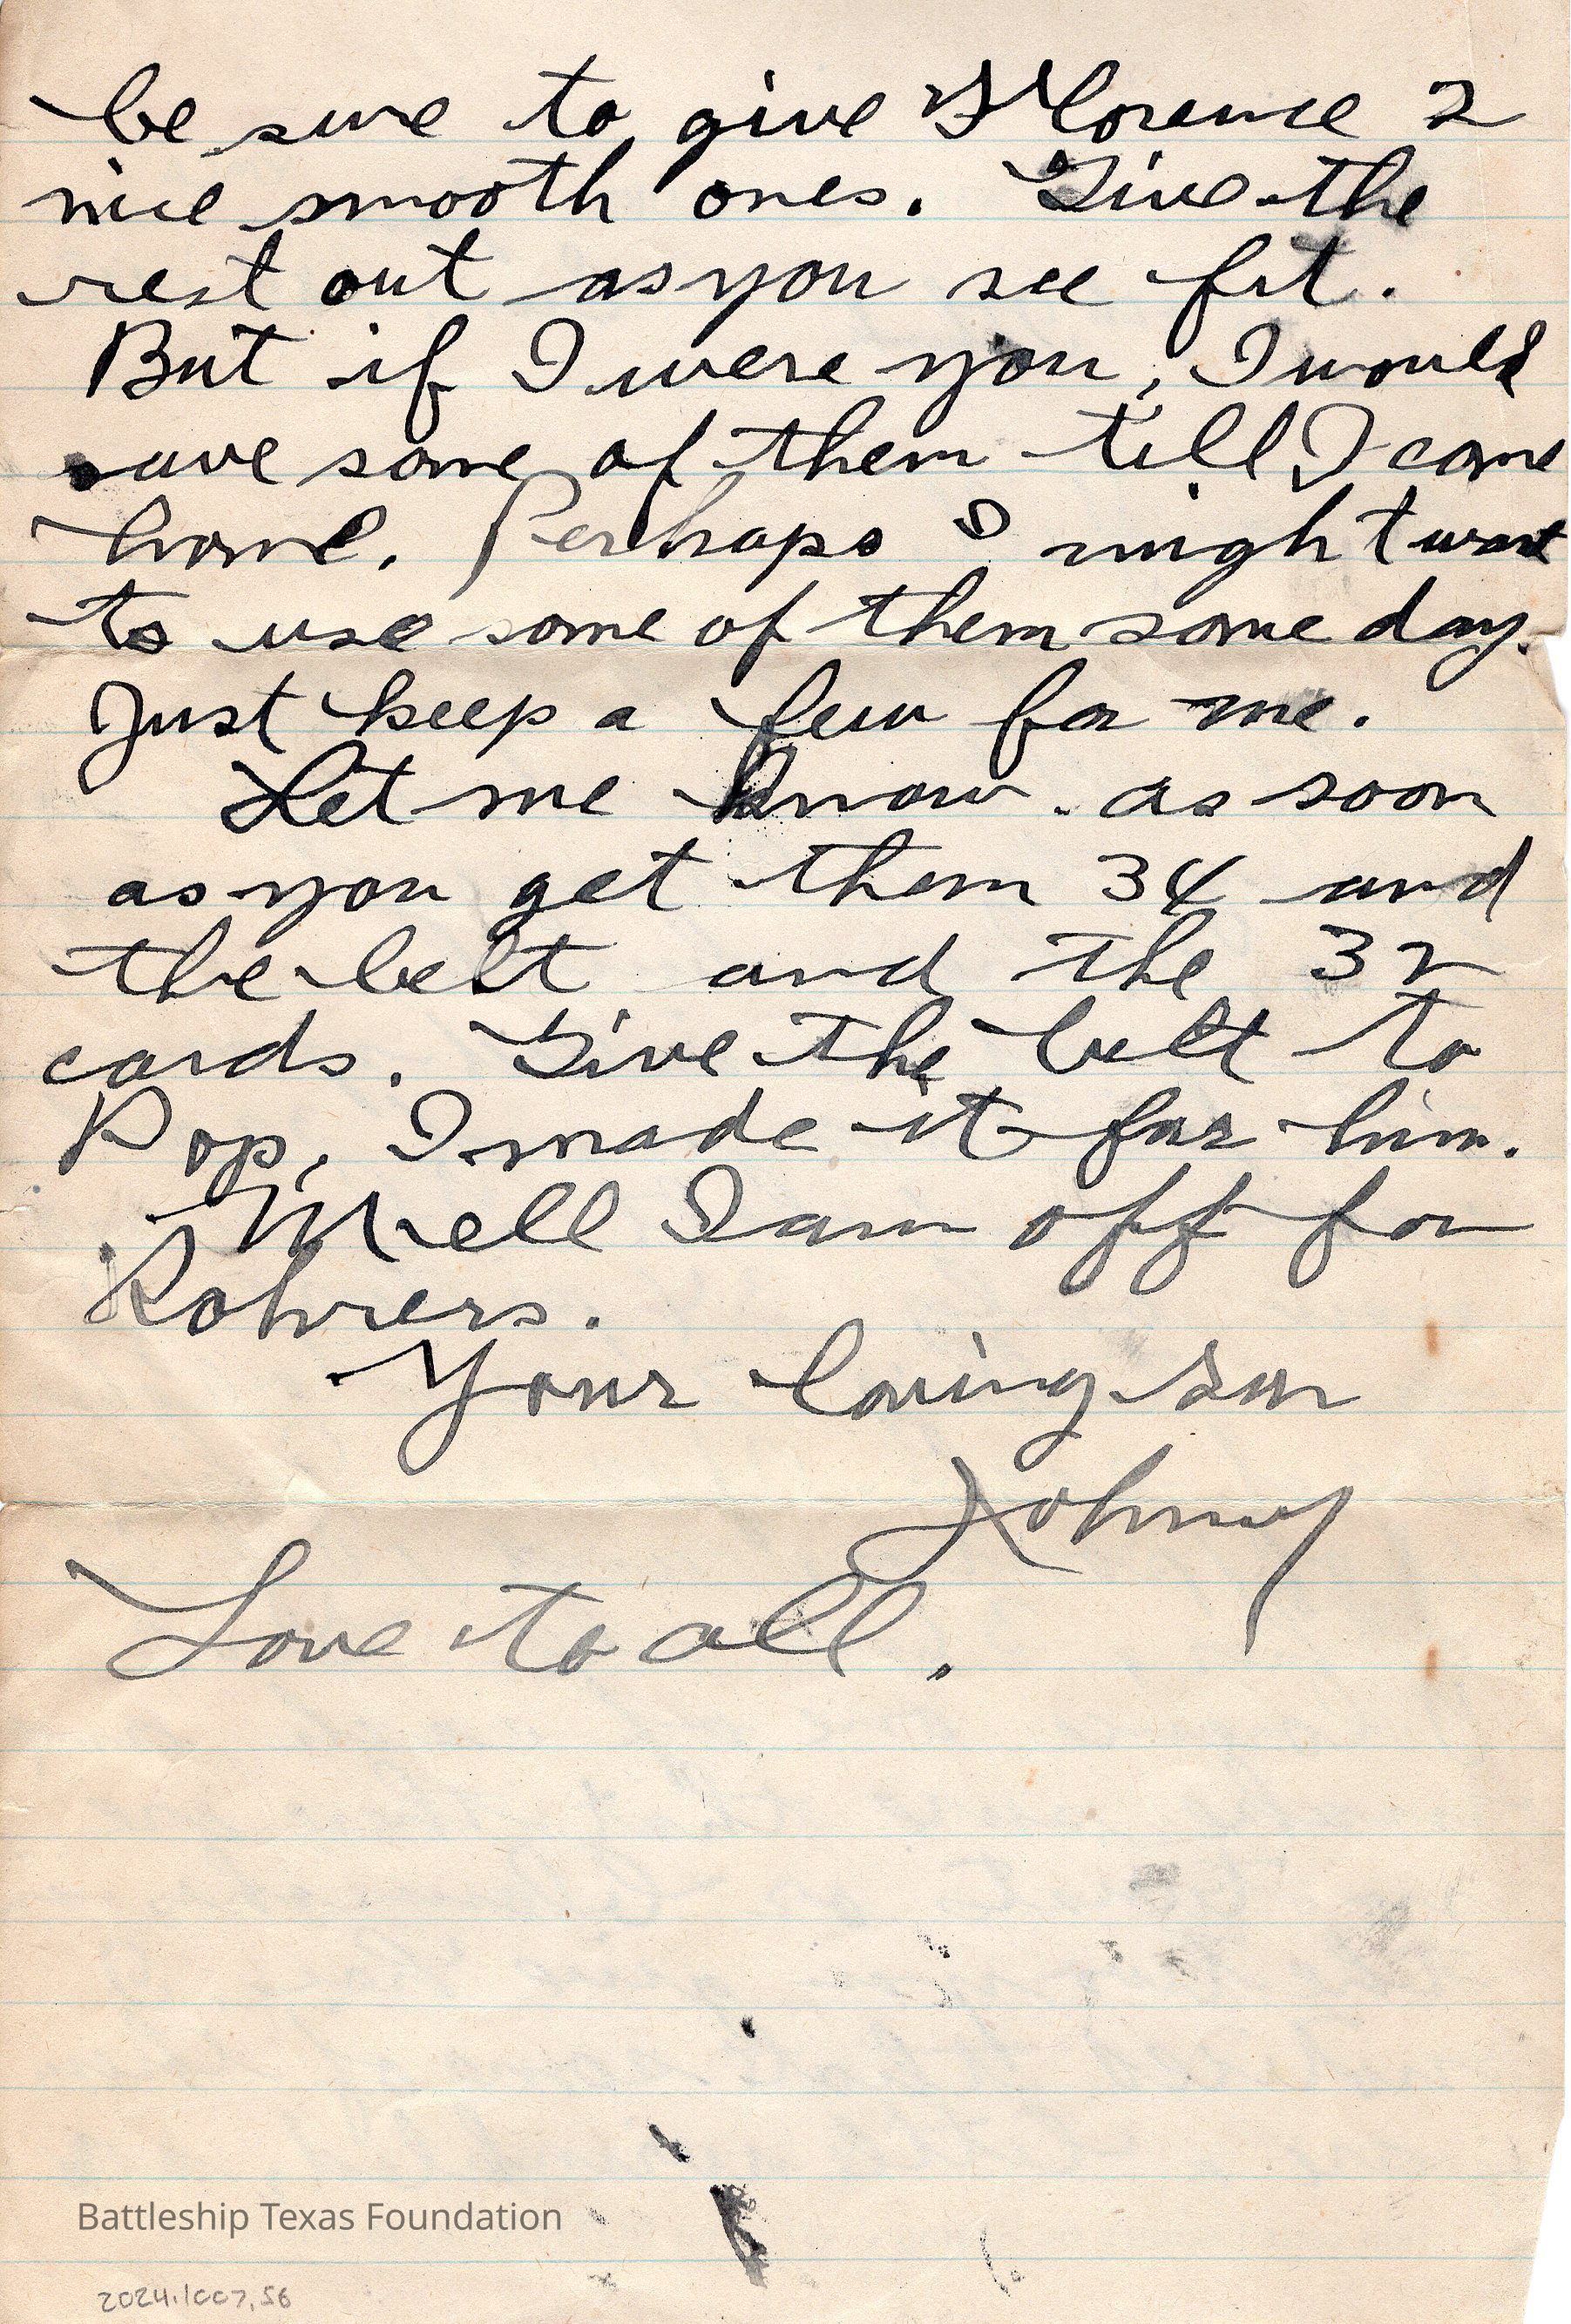 be sure to give Florence 2
nice smooth ones. Give the
rest out as you see fit.
But if I were you, I would
save some of them till I come
home. Perhaps I might want
to use some of them some day.
Just keep a few for me.
Let me know as soon
as you get them 34 and
the belt and the 32
cards. Give the belt to
Pop, I made it for him.
Well I am off for
Rohrers.
Your loving son
Johnny
Love to all.
Battleship Texas Foundation
2024.1007.56